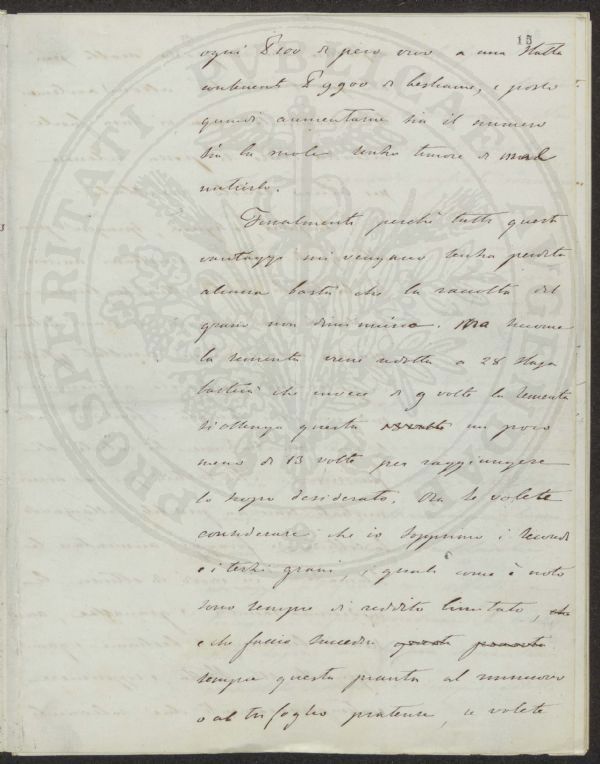 13
ogni ℔ 100 di peso vivo a una stalla
contenente ℔ 9900 di bestiame, e posso
quindi aumentarne sia il numero
sia la mole senza timore di mal
nutrirlo.
Finalmente perchè tutti questi
vantaggi mi vengano senza perdita
alcuna basta che la raccolta del
grano non diminuisca. Ma siccome
la sementa viene ridotta a 28 staja
basterà che invece di 9 volte la sementa
si ottenga questa un poco
meno di 13 volte per raggiungere
lo scopo desiderato. Ora se volete
considerare che io sopprimo i secondi
e i terzi grani, i quali come è noto
sono sempre di reddito limitato, che
e che faccio succedere questa pianta
sempre questa pianta al
o al trifoglio pratense, se volete
PROSPERITATI PUBLICAE